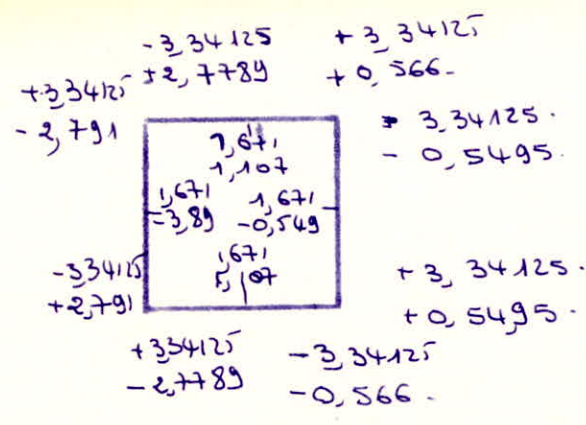 -3,34125
+2,7789
+3,34125
+0,566-
+3,34125
-2,791
3,34125.
-0,5495.
1,671
1,107
1,671
-3,89
1,671
-0,549
1,671
-3,34125
+2,791
+3,34125.
+0,5495.
+3,34125
-2,7789
-3,34125
-0,566.